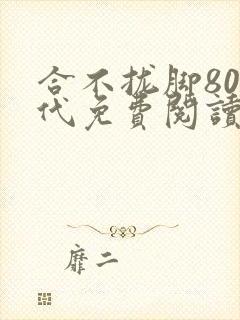 合不拢脚80
代免費閱讀
靡二